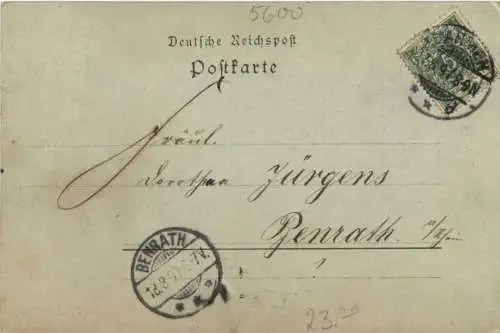 5600
Deutsche Reichspost
Postkarte
Fräul.
Dorothea Jürgens
Benrath a/Rh.
BENRATH
23.